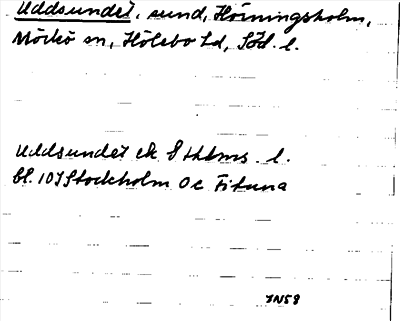 Uddsundet, sund, Hörningsholm,
Mörkö sn, Hölebo hd, Söd. l.
Uddsundet ek Sthlms. l.
bl. 107 Stockholm Oc Fituna
YN58